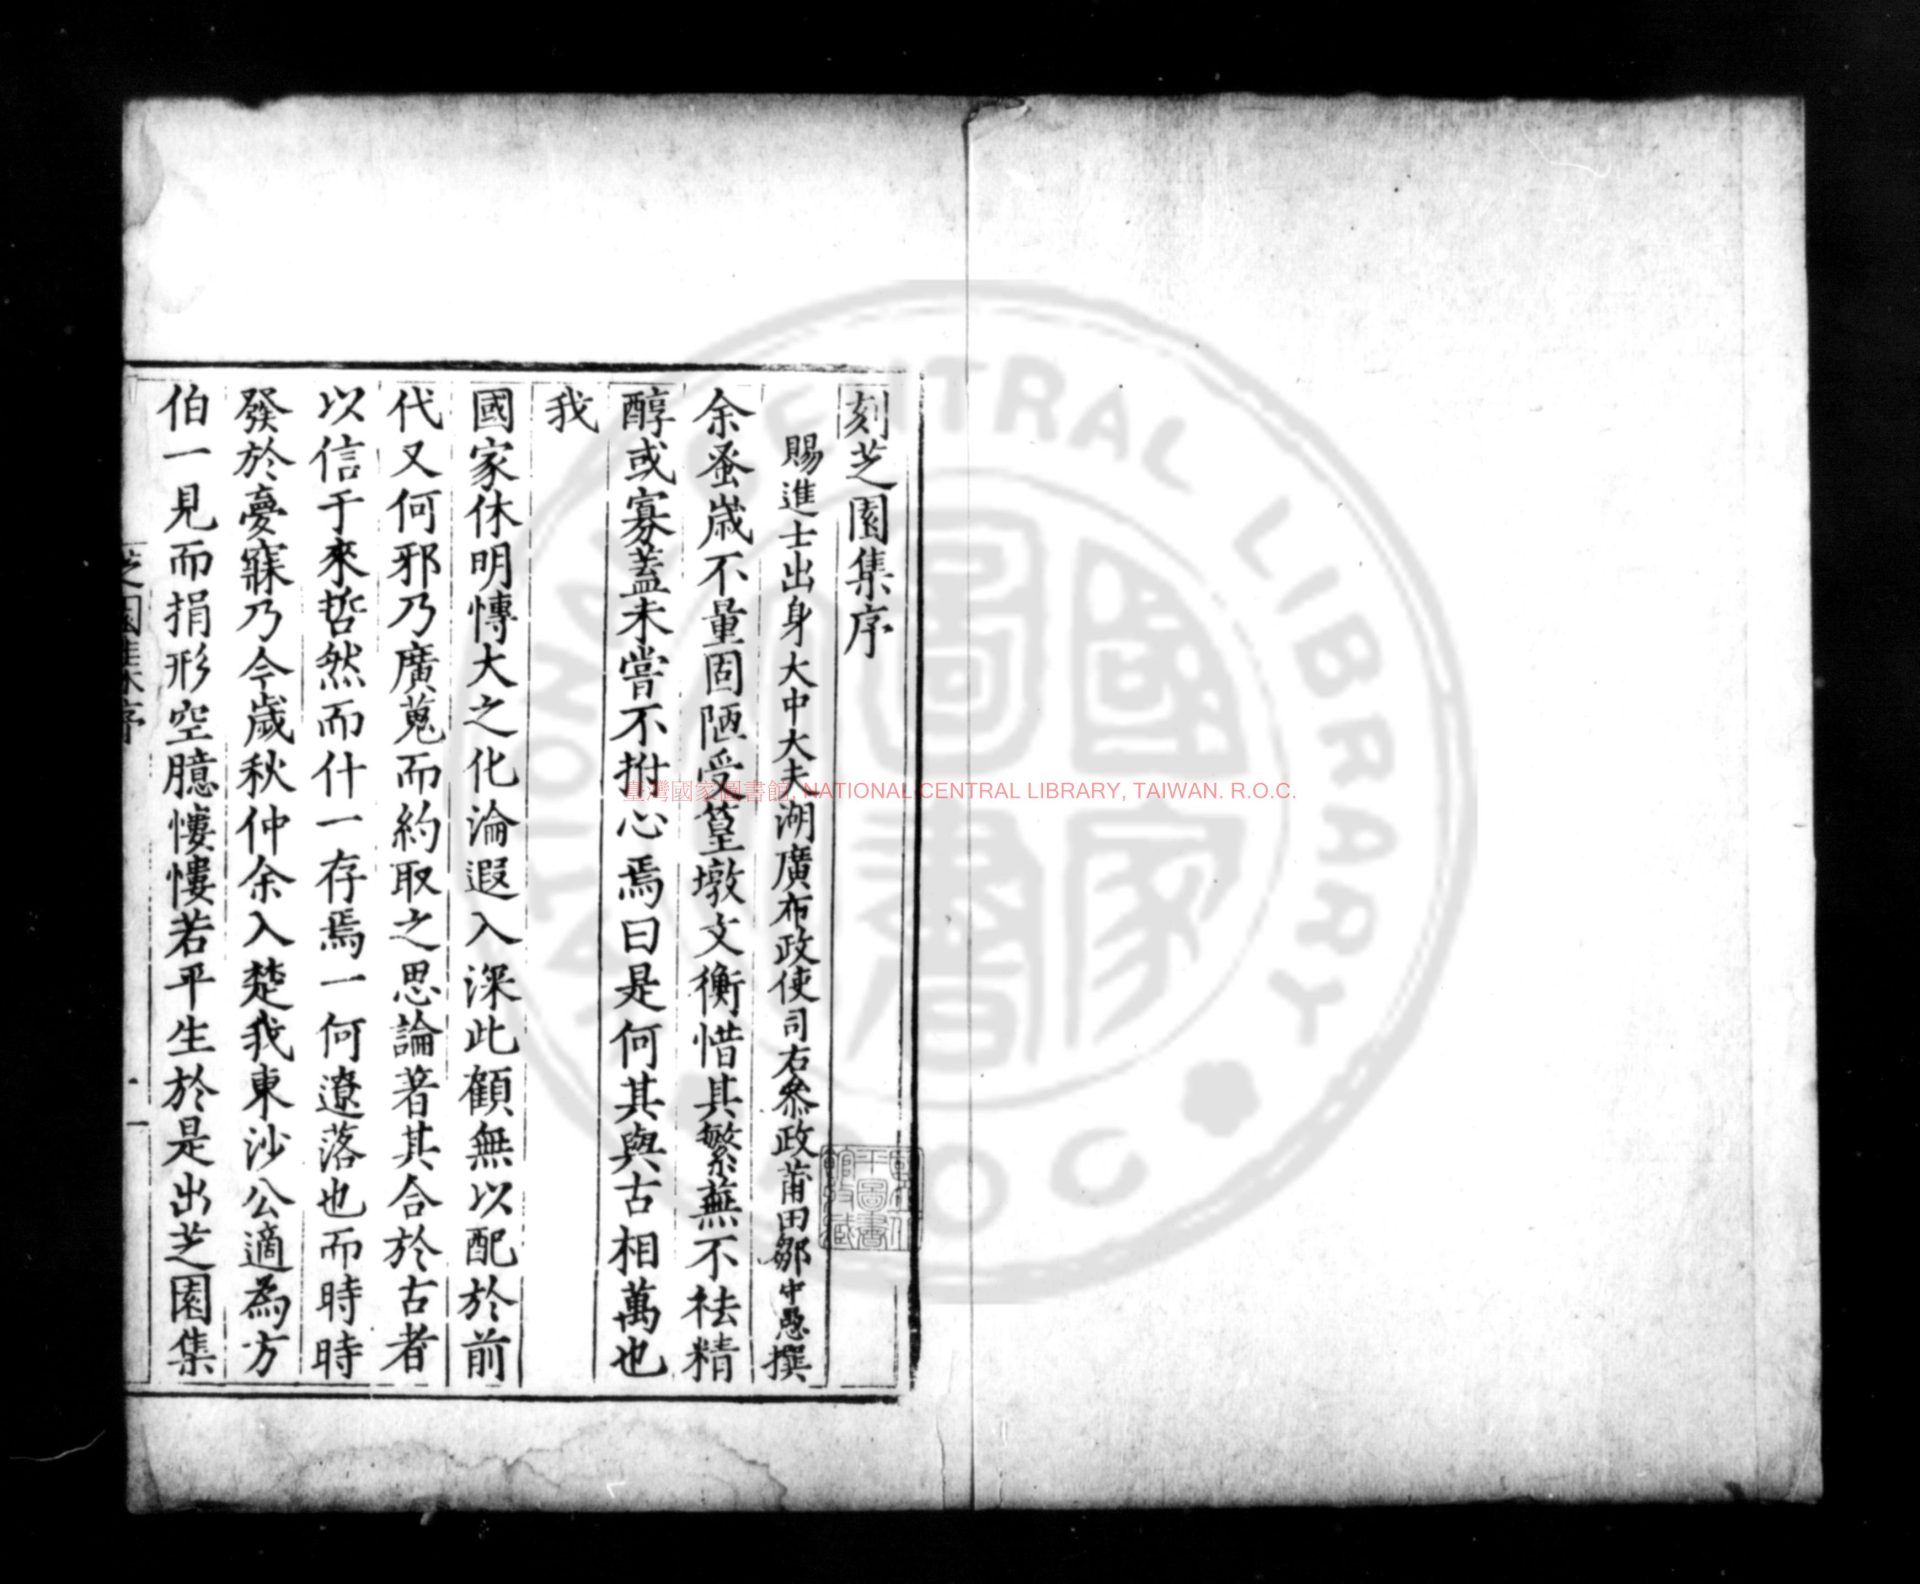 刻芝園集序
賜進士出身大中大夫湖廣布政使司右叅政莆田鄒守愚撰
余蚤嵗不量固陋受篁墩文衡惜其繁蕪不祛精
醇或寡蓋未嘗不拊心焉曰是何其與古相萬也
我
國家休明慱大之化淪遐入深此顧無以配於前
代又何邪乃廣蒐而約取之思論著其合於古者
以信于來哲然而什一存焉一何遼落也而時時
發於㝱寐乃今嵗秋仲余入楚我東沙公適為方
伯一見而捐形空臆慺慺若平生於是出芝園集
芝園集序
一
臺灣國家圖書館, NATIONAL CENTRAL LIBRARY, TAIWAN. R.O.C.
NATIONAL CENTRAL LIBRARY
R.O.C.
國家圖書